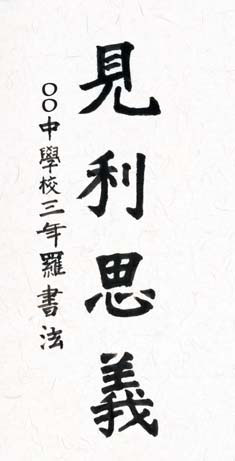 見利思義
○○中學校三年羅書法